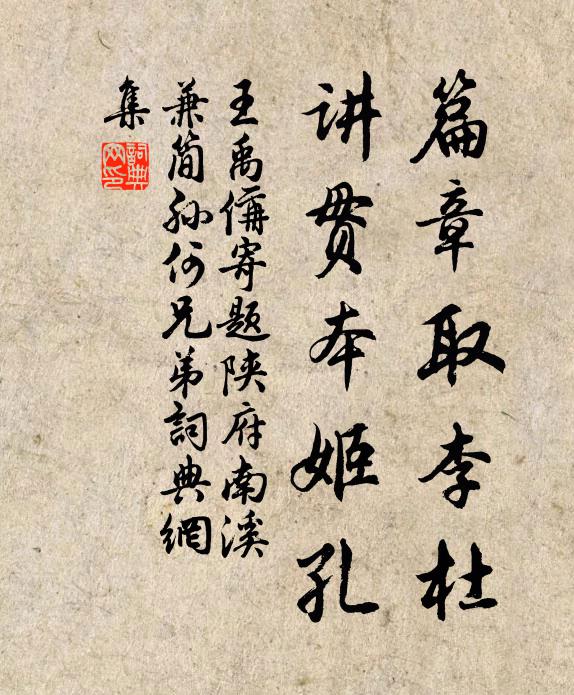 篇章取李杜
讲贯本姬孔
王禹偁寄题陕府南溪
兼简孙何兄弟詞典網
集
詞典网印